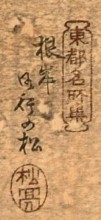 東都名所集
根岸
御行の松